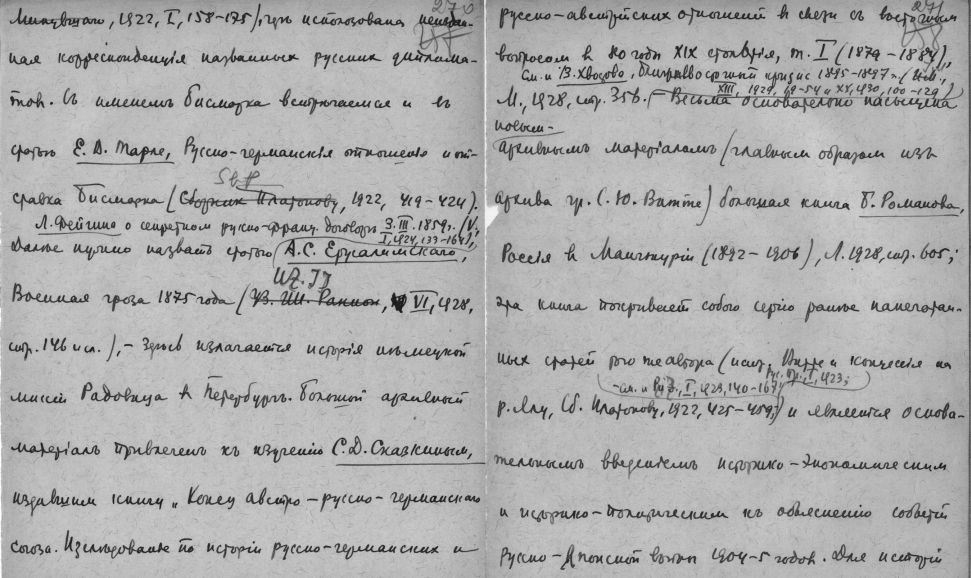 270
Минувшаго, 1922, I, 158-175), гдѣ использована неиздан-
ная корреспонденція названныхъ русских диплома-
товъ. Съ именемъ Бисмарка встрѣчаемся и въ
статьѣ Е. В. Тарле, Русско-германскія отношенія и от-
ставка Бисмарка (Сборник Платонову, 1922, 419-424).
Л. Фейгина о секретном русско-франц. договорѣ 3.III.1859г. (
I, 1924, 133-164);
Далѣе нужно назвать статью А.С. Ерусалимскаго,
Военная гроза 1875 года (У.З. И.И. Ранион, VI, 1928,
стр. 146 и сл.), - Здѣсь излагается исторія нѣмецкой
миссіи Радовица въ Петербургъ. Большой архивный
матеріалъ привлеченъ къ изученію С.Д. Сказкинымъ,
издавшим книгу „Конец австро-русско-германскаго
союза. Изслѣдованіе по исторіи русско-германских и
271
русско-австрійских отношеній въ связи съ восточным
вопросом в 80 годы XIX столѣтія, т. I (1879-1884),
См. и В. Хвостова, Ближневосточный кризис 1895-1897 г. (
XIII, 1929, 19-54 и XX, 1930, 100-129)
М., 1928, стр. 356. Весьма основательно насыщена
новым-
архивнымъ матеріаломъ (главным образом изъ
архива гр. С. Ю. Витте) большая книга Б. Романова,
Россія въ Манчжуріи (1892-1906), Л. 1928, стр. 605;
эта книга покрывает собою серію ранѣе напечатан-
ных статей того же автора (напр. Витте и концессія на
Рус. Пр., I, 1923;
- см. и I, 1923, 140-167
р. Ялу, Сб. Платонову, 1922, 425-459;) и является основа-
тельнымъ введеніемъ историко-экономическим
и историко-политическим къ объясненію событій
русско-Японской войны 1904-5 годов. Для исторіи